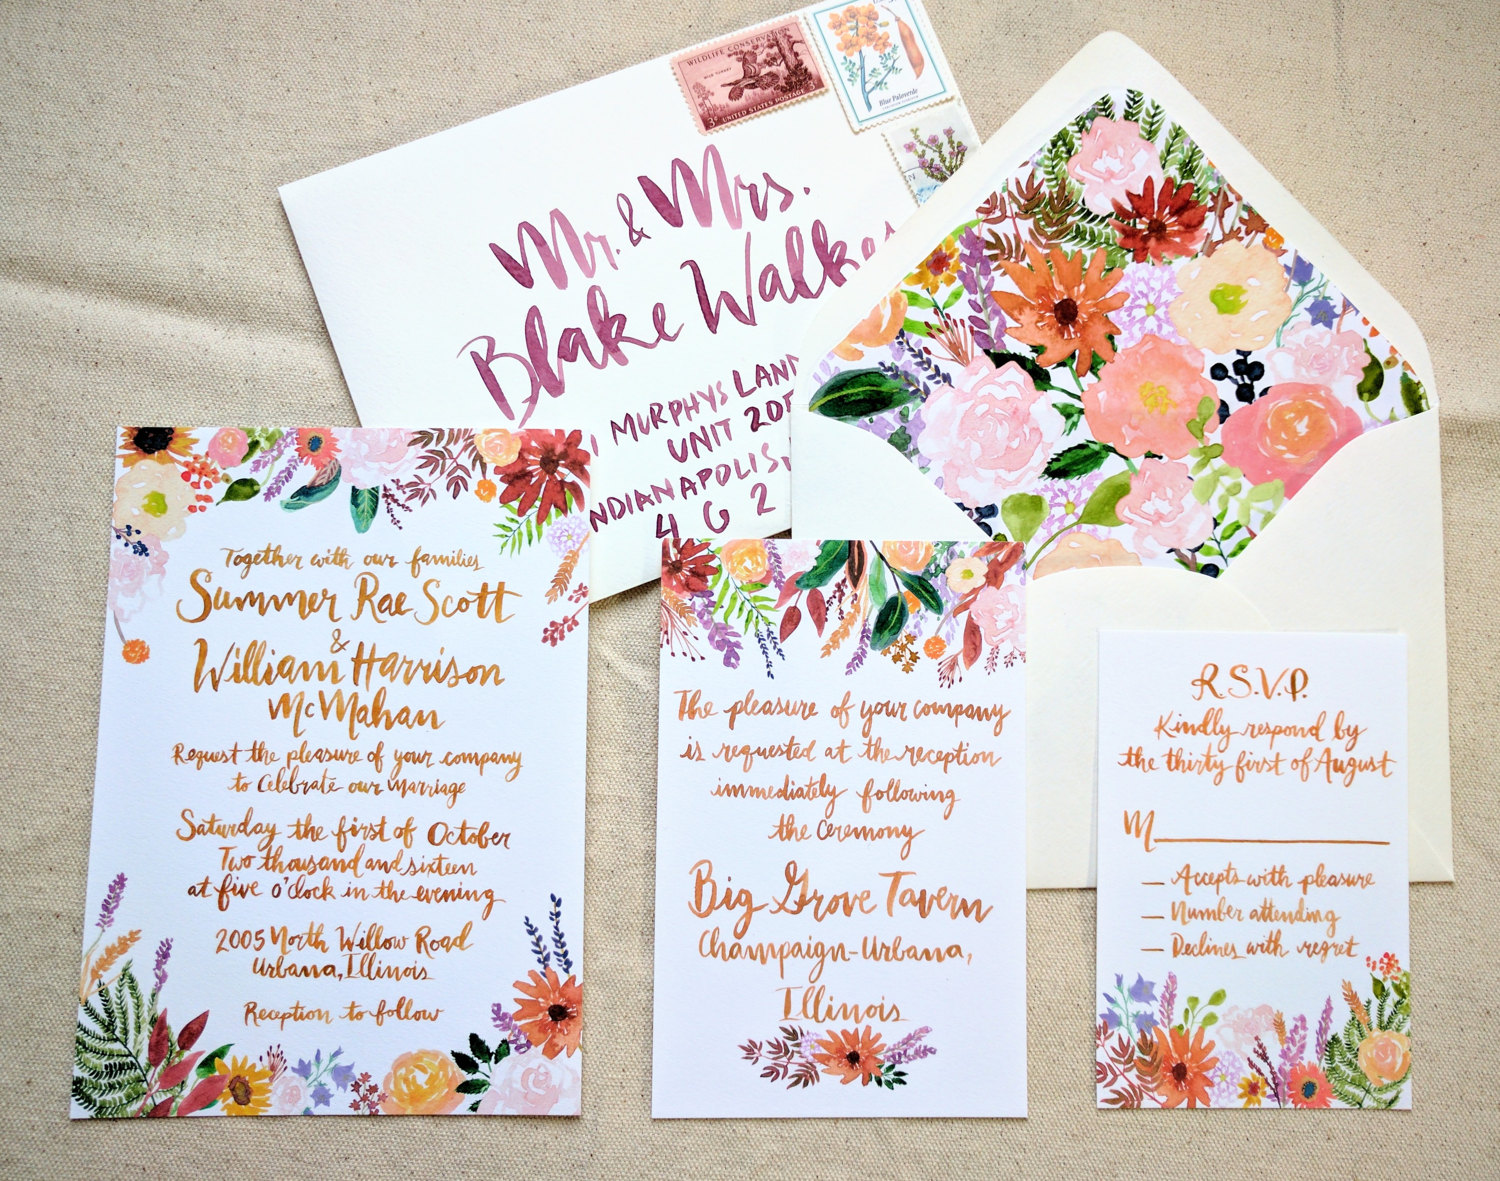 WILDLIFE CONSERVATION
WILD TURKEY
3¢ UNITED STATES POSTAGE
Blue Paloverde
Mr. & Mrs.
Blake Walker
MURPHYS
UNIT
4 6 2
Together with our families
Summer Rae Scott
&
William Harrison
McMahan
Request the pleasure of your company
to celebrate our marriage
Saturday the first of October
Two thousand and sixteen
at five o'clock in the evening
2005 North Willow Road
Urbana, Illinois
Reception to follow
The pleasure of your company
is requested at the reception
immediately following
the ceremony
Big Grove Tavern
Champaign-Urbana,
Illinois
R.S.V.P.
Kindly respond by
the thirty first of August
M
Accepts with pleasure
Number attending
Declines with regret